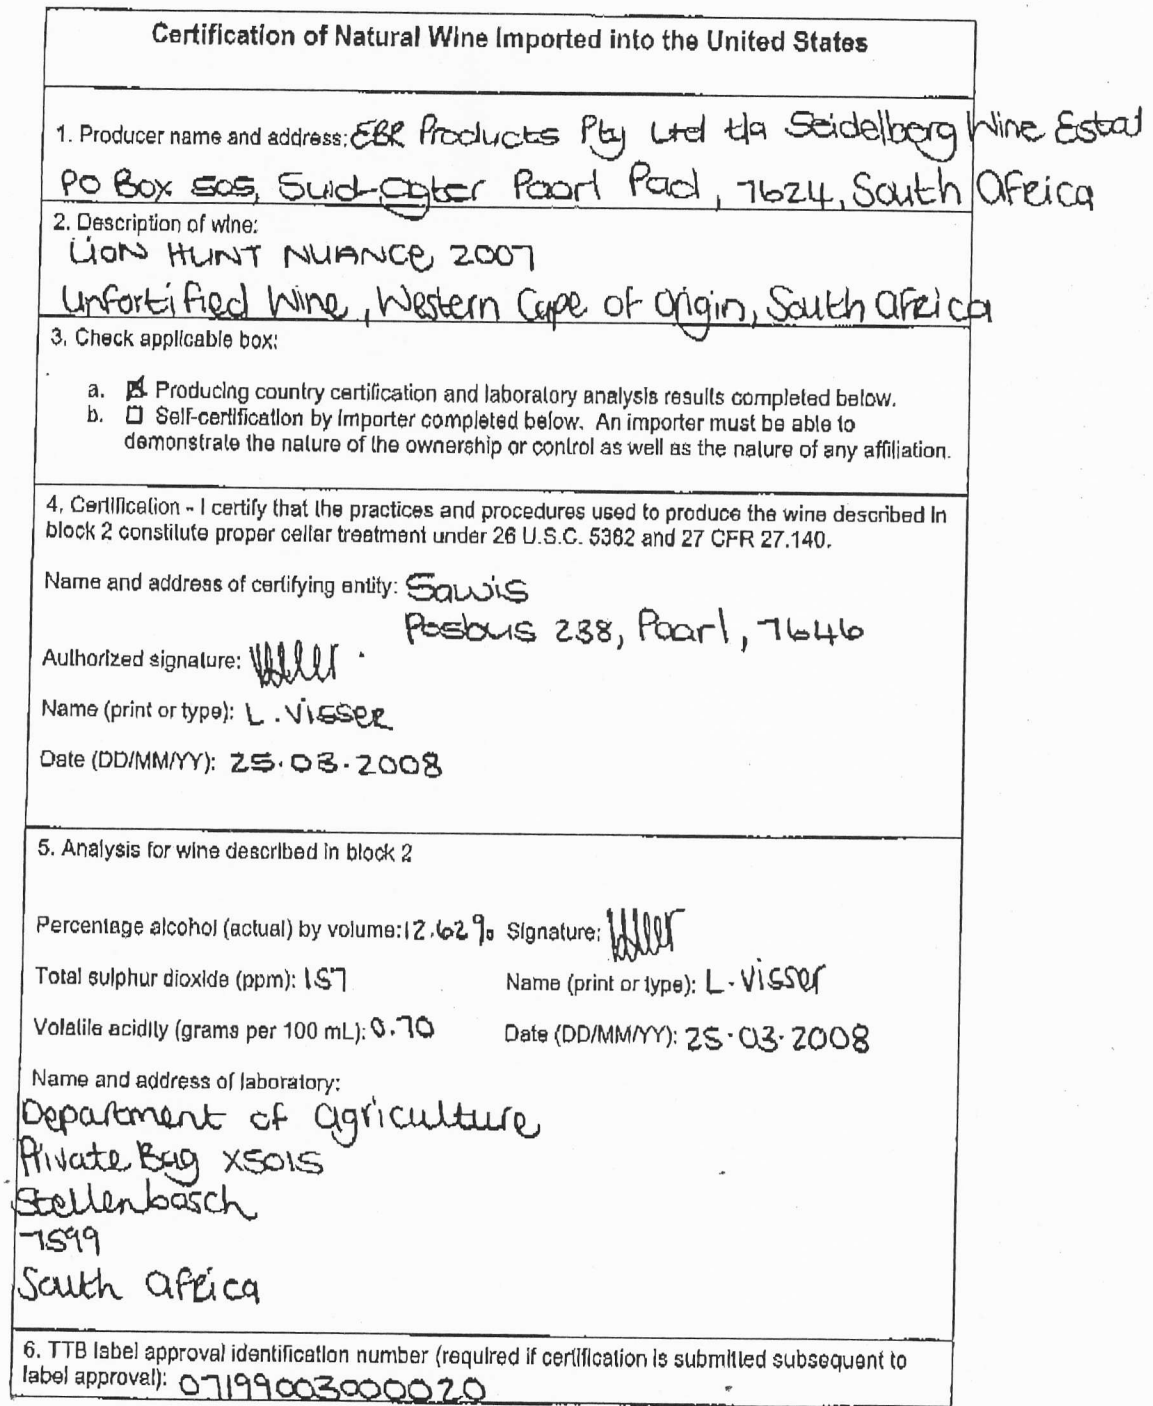 Certification of Natural Wine Imported into the United States
1. Producer name and address: EBR Products Pty Ltd t/a Seidelberg Wine Estat
PO Box 505, Suid-Agter Paarl Pad, 7624, South Africa
2. Description of wine:
LION HUNT NUANCE 2007
Unfortified Wine, Western Cape of Origin, South Africa
3. Check applicable box:
a. ☒ Producing country certification and laboratory analysis results completed below.
b. ☐ Self-certification by importer completed below. An importer must be able to
demonstrate the nature of the ownership or control as well as the nature of any affiliation.
4. Certification - I certify that the practices and procedures used to produce the wine described in
block 2 constitute proper cellar treatment under 26 U.S.C. 5382 and 27 CFR 27.140.
Name and address of certifying entity: Sawis
Posbus 238, Paarl, 7646
Authorized signature:
Name (print or type): L. Visser
Date (DD/MM/YY): 25.03.2008
5. Analysis for wine described in block 2
Percentage alcohol (actual) by volume: 12.62% Signature:
Total sulphur dioxide (ppm): 157 Name (print or type): L. Visser
Volatile acidity (grams per 100 mL): 0.70 Date (DD/MM/YY): 25.03.2008
Name and address of laboratory:
Department of Agriculture
Private Bag X5015
Stellenbosch
7599
South Africa
6. TTB label approval identification number (required if certification is submitted subsequent to
label approval): 07199003000020